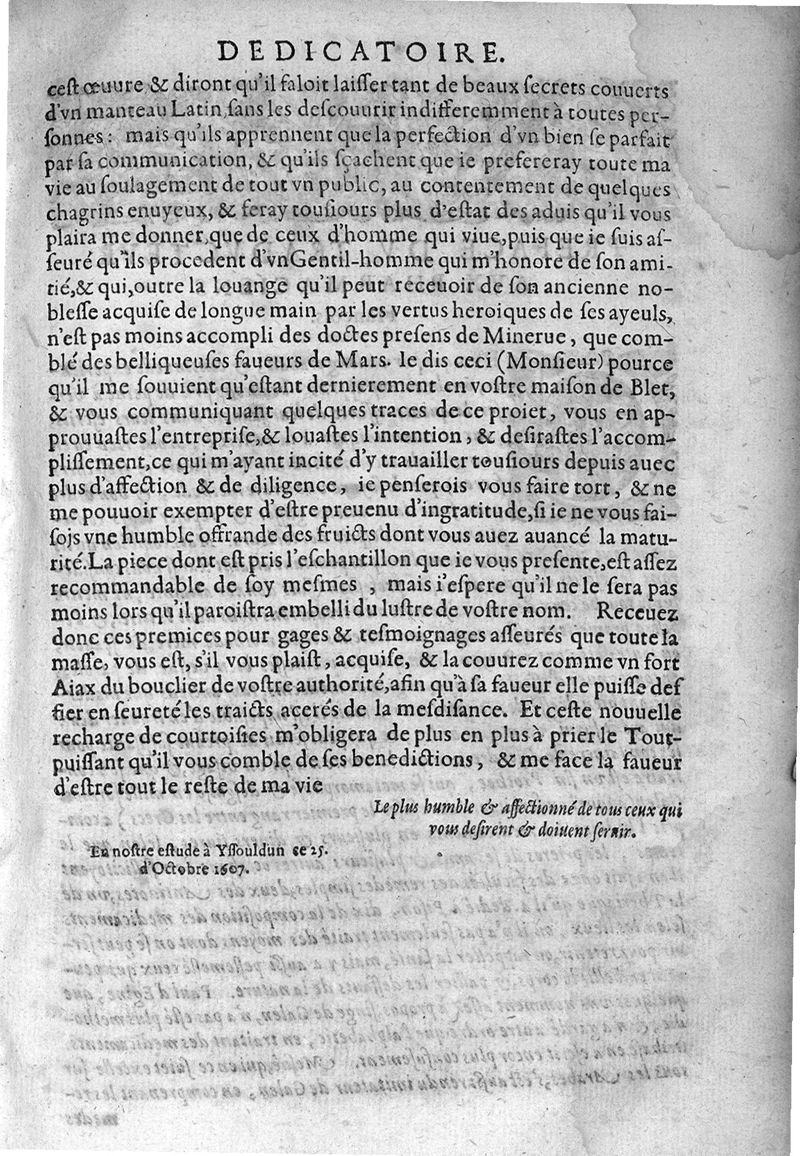 DEDICATOIRE.
ceſt œuure & diront qu'il faloit laiſſer tant de beaux ſecrets couuerts
d'vn manteau Latin, ſans les deſcouurir indifferemment à toutes per-
ſonnes: mais qu'ils apprennent que la perfection d'vn bien ſe parfait
par ſa communication, & qu'ils ſçachent que ie prefereray toute ma
vie au ſoulagement de tout vn public, au contentement de quelques
chagrins enuyeux, & feray touſiours plus d'eſtat des aduis qu'il vous
plaira me donner, que de ceux d'homme qui viue, puis que ie ſuis aſ-
ſeuré qu'ils procedent d'vn Gentil-homme qui m'honore de ſon ami-
tié, & qui, outre la louange qu'il peut receuoir de ſon ancienne no-
bleſſe acquiſe de longue main par les vertus heroiques de ſes ayeuls,
n'eſt pas moins accompli des doctes preſens de Minerue, que com-
blé des belliqueuſes faueurs de Mars. Ie dis ceci (Monſieur) pource
qu'il me ſouuient qu'eſtant dernierement en voſtre maiſon de Blet,
& vous communiquant quelques traces de ce proiet, vous en ap-
prouuaſtes l'entrepriſe, & louaſtes l'intention, & deſiraſtes l'accom-
pliſſement, ce qui m'ayant incité d'y trauailler touſiours depuis auec
plus d'affection & de diligence, ie penſerois vous faire tort, & ne
me pouuoir exempter d'eſtre preuenu d'ingratitude, ſi ie ne vous fai-
ſois vne humble offrande des fruicts dont vous auez auancé la matu-
rité. La piece dont eſt pris l'eſchantillon que ie vous preſente, eſt aſſez
recommandable de ſoy meſmes, mais i'eſpere qu'il ne le ſera pas
moins lors qu'il paroiſtra embelli du luſtre de voſtre nom. Receuez
donc ces premices pour gages & teſmoignages aſſeurés que toute la
maſſe, vous eſt, s'il vous plaiſt, acquiſe, & la couurez comme vn fort
Aiax du bouclier de voſtre authorité, afin qu'à ſa faueur elle puiſſe deſ
fier en ſeureté les traicts acerés de la meſdiſance. Et ceſte nouuelle
recharge de courtoiſies m'obligera de plus en plus à prier le Tout-
puiſſant qu'il vous comble de ſes benedictions, & me face la faueur
d'eſtre tout le reſte de ma vie
Le plus humble & affectionné de tous ceux qui
vous deſirent & doiuent ſeruir.
En noſtre eſtude à Yſſouldun ce 25.
d'Octobre 1607.